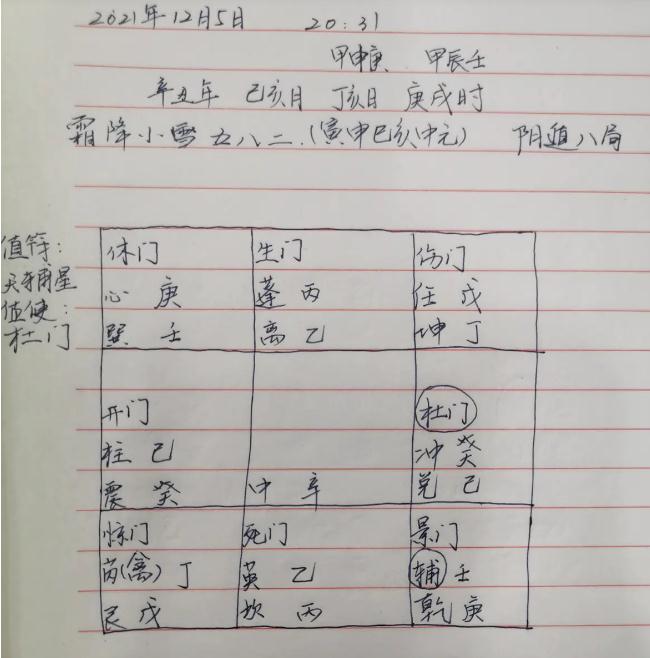 2021年12月5日 20:31
甲申庚 甲辰壬
辛丑年 己亥月 丁亥日 庚戌时
霜降小雪五八二.(寅申巳亥中元) 阴遁八局
值符:
天辅星
值使:
杜门
休门 生门 伤门
心 庚 蓬 丙 任 戊
巽 壬 离 乙 坤 丁
开门 杜门
柱 己 冲 癸
震 癸 中 辛 兑 己
惊门 死门 景门
芮(禽) 丁 英 乙 辅 壬
艮 戊 坎 丙 乾 庚